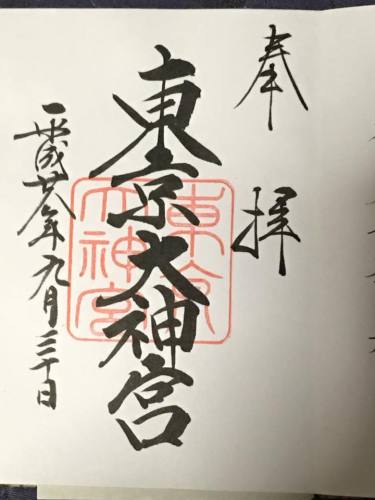 奉拝
東京大神宮
東京大神宮
平成廿八年九月三十日